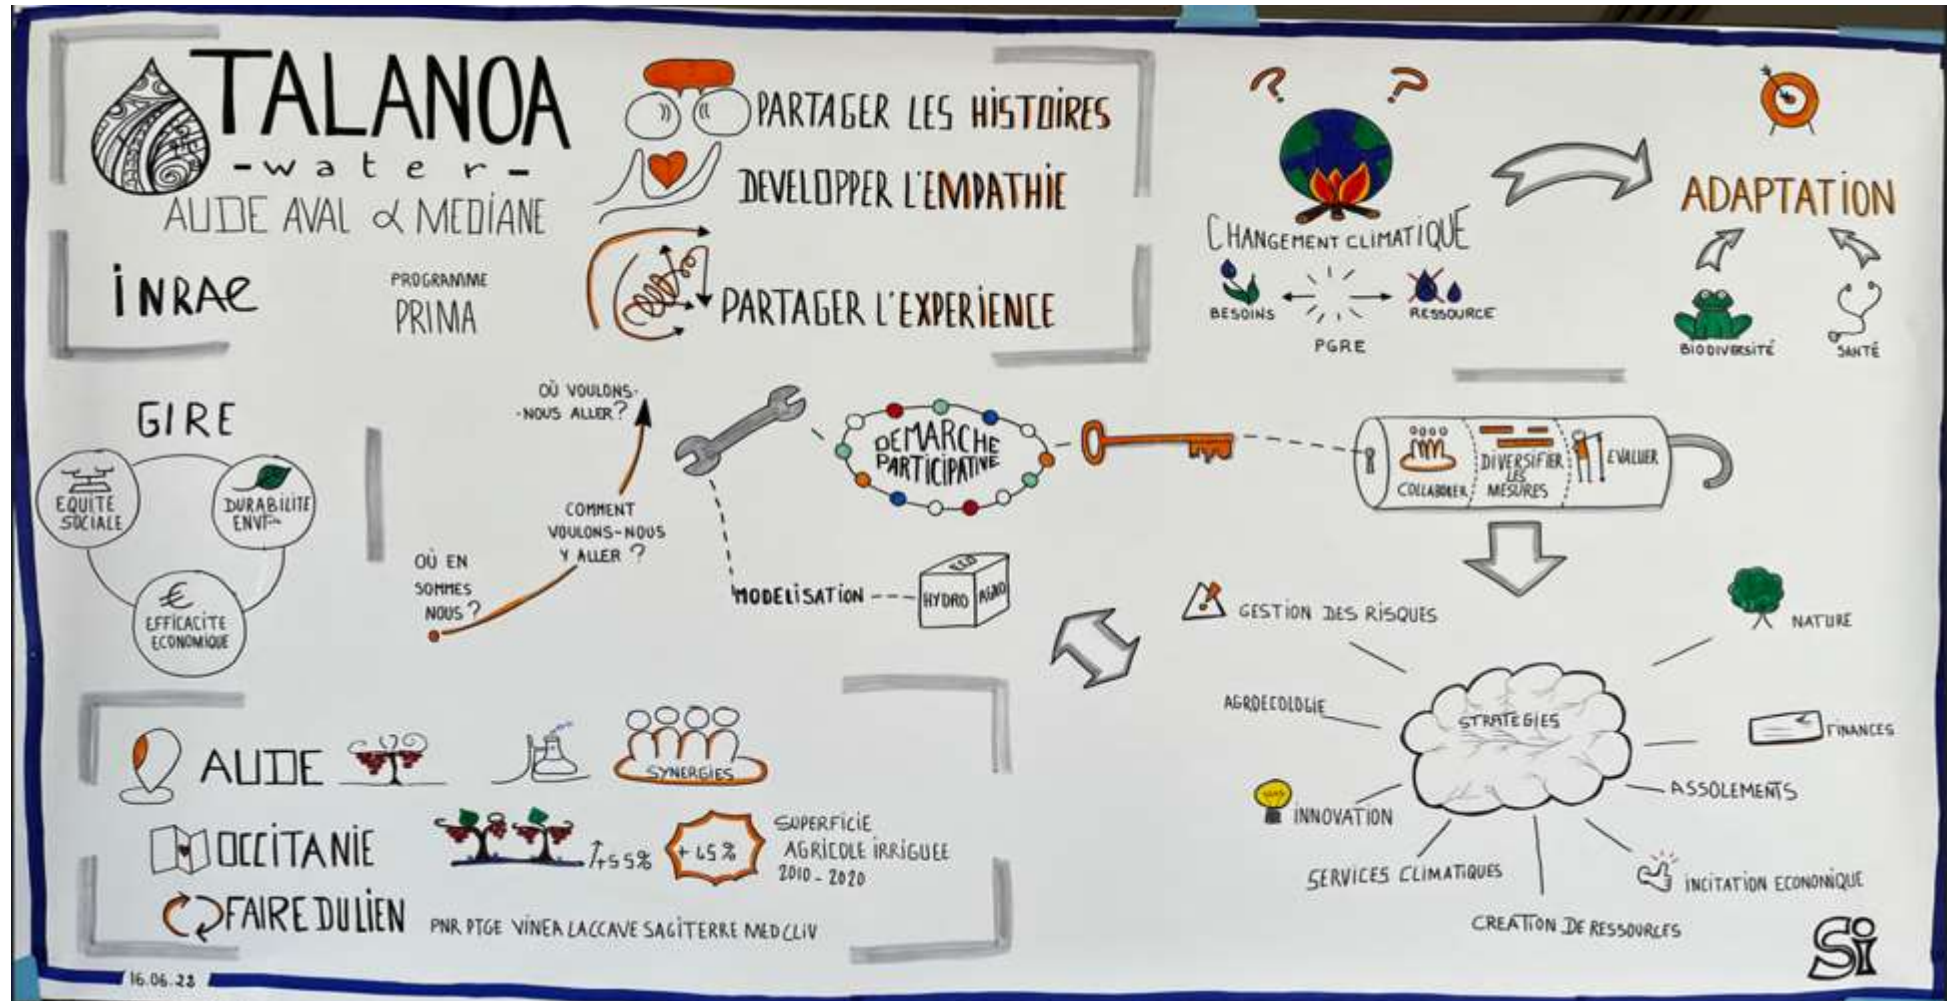 TALANOA
- water -
AUDE AVAL & MEDIANE
INRAE
PROGRAMME
PRIMA
PARTAGER LES HISTOIRES
DEVELOPPER L'EMPATHIE
PARTAGER L'EXPERIENCE
? ?
CHANGEMENT CLIMATIQUE
BESOINS
RESSOURCE
PGRE
ADAPTATION
BIODIVERSITÉ
SANTÉ
GIRE
EQUITE
SOCIALE
DURABILITE
€
EFFICACITE
ECONOMIQUE
OÙ EN
SOMMES
NOUS ?
COMMENT
VOULONS-NOUS
Y ALLER ?
OÙ VOULONS-
-NOUS ALLER ?
DEMARCHE
PARTICIPATIVE
MODELISATION
ECO
HYDRO
AGRO
COLLABORER
DIVERSIFIER
LES
MESURES
EVALUER
GESTION DES RISQUES
NATURE
AGROECOLOGIE
STRATEGIES
FINANCES
INNOVATION
ASSOLEMENTS
SERVICES CLIMATIQUES
INCITATION ECONOMIQUE
CREATION DE RESSOURCES
AUDE
SYNERGIES
OCCITANIE
+55%
SUPERFICIE
AGRICOLE IRRIGUEE
2010 - 2020
FAIRE DU LIEN
PNR PTGE VINEA LACCAVE SAGITERRE MEDCLIV
Si